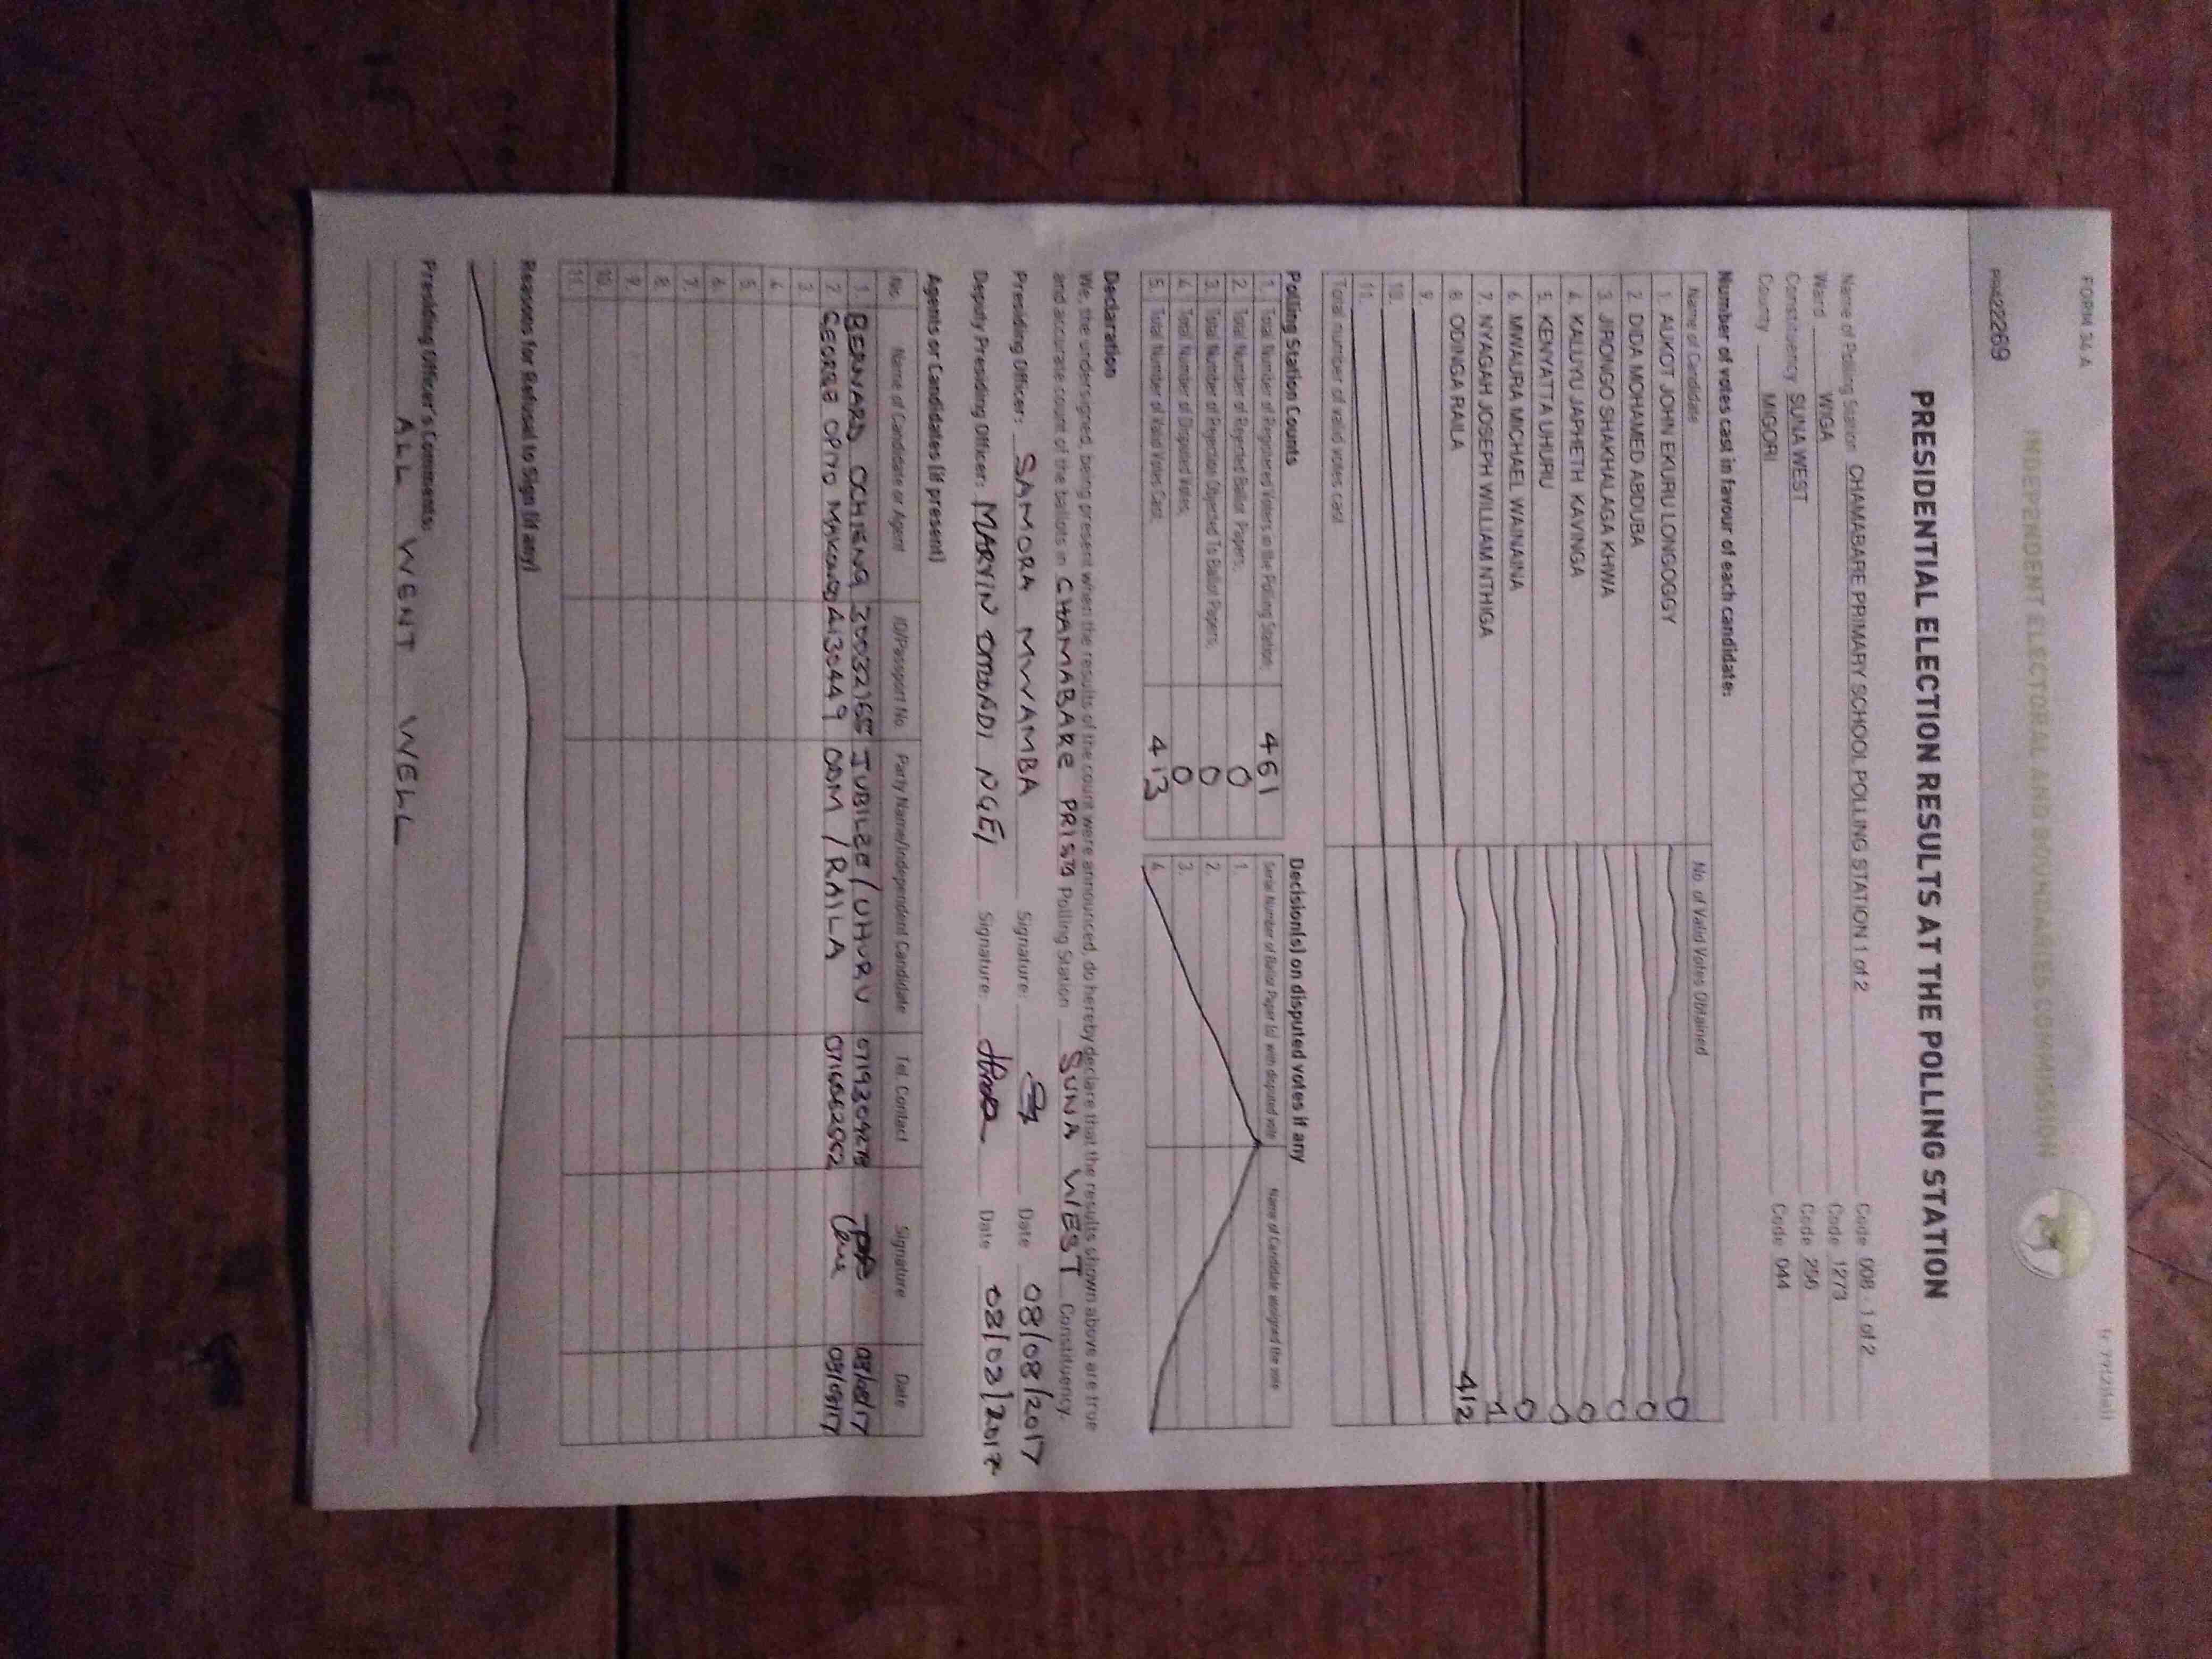 FORM 34 A
INDEPENDENT ELECTORAL AND BOUNDARIES COMMISSION
PRESIDENTIAL ELECTION RESULTS AT THE POLLING STATION
Name of Polling Station CHAMABARE PRIMARY SCHOOL POLLING STATION 1 of 2 Code 008 1 of 2
Ward WIGA Code 1273
Constituency SUNA WEST Code
County MIGORI Code 044
Number of votes cast in favour of each candidate:
Name of Candidate No. of Valid Votes Obtained
1. AUKOT JOHN EKURU LONGOGGY 0
2. DIDA MOHAMED ABDUBA 0
3. JIRONGO SHAKHALAGA KHWA 0
4. KALUYU JAPHETH KAVINGA 0
5. KENYATTA UHURU 0
6. MWAURA MICHAEL WAINAINA 0
7. NYAGAH JOSEPH WILLIAM NTHIGA 1
8. ODINGA RAILA 412
9.
10.
11.
Total number of valid votes cast
Polling Station Counts
1. Total Number of Registered Voters in the Polling Station; 461
2. Total Number of Rejected Ballot Papers; 0
3. Total Number of Rejection Objected To Ballot Papers; 0
4. Total Number of Disputed Votes; 0
5. Total Number of Valid Votes Cast; 413
Decision(s) on disputed votes if any
Serial Number of Ballot Paper (s) with disputed vote Name of Candidate assigned the vote
1.
2.
3.
4.
Declaration
We, the undersigned, being present when the results of the count were announced, do hereby declare that the results shown above are true
and accurate count of the ballots in CHAMABARE PRI Polling Station SUNA WEST Constituency.
Presiding Officer: SAMORA MWAMBA Signature: Date 08/08/2017
Deputy Presiding Officer: MARVIN NGEI Signature: Date 08/08/2017
Agents or Candidates (if present)
No. Name of Candidate or Agent ID/Passport No. Party Name/Independent Candidate Tel. Contact Signature Date
1. BERNARD OCHIENG JUBILEE/UHURU
2. GEORGE ODM/RAILA
3.
4.
5.
6.
7.
8.
9.
10.
11.
Reasons for Refusal to Sign (if any)
Presiding Officer's Comments:
ALL WENT WELL